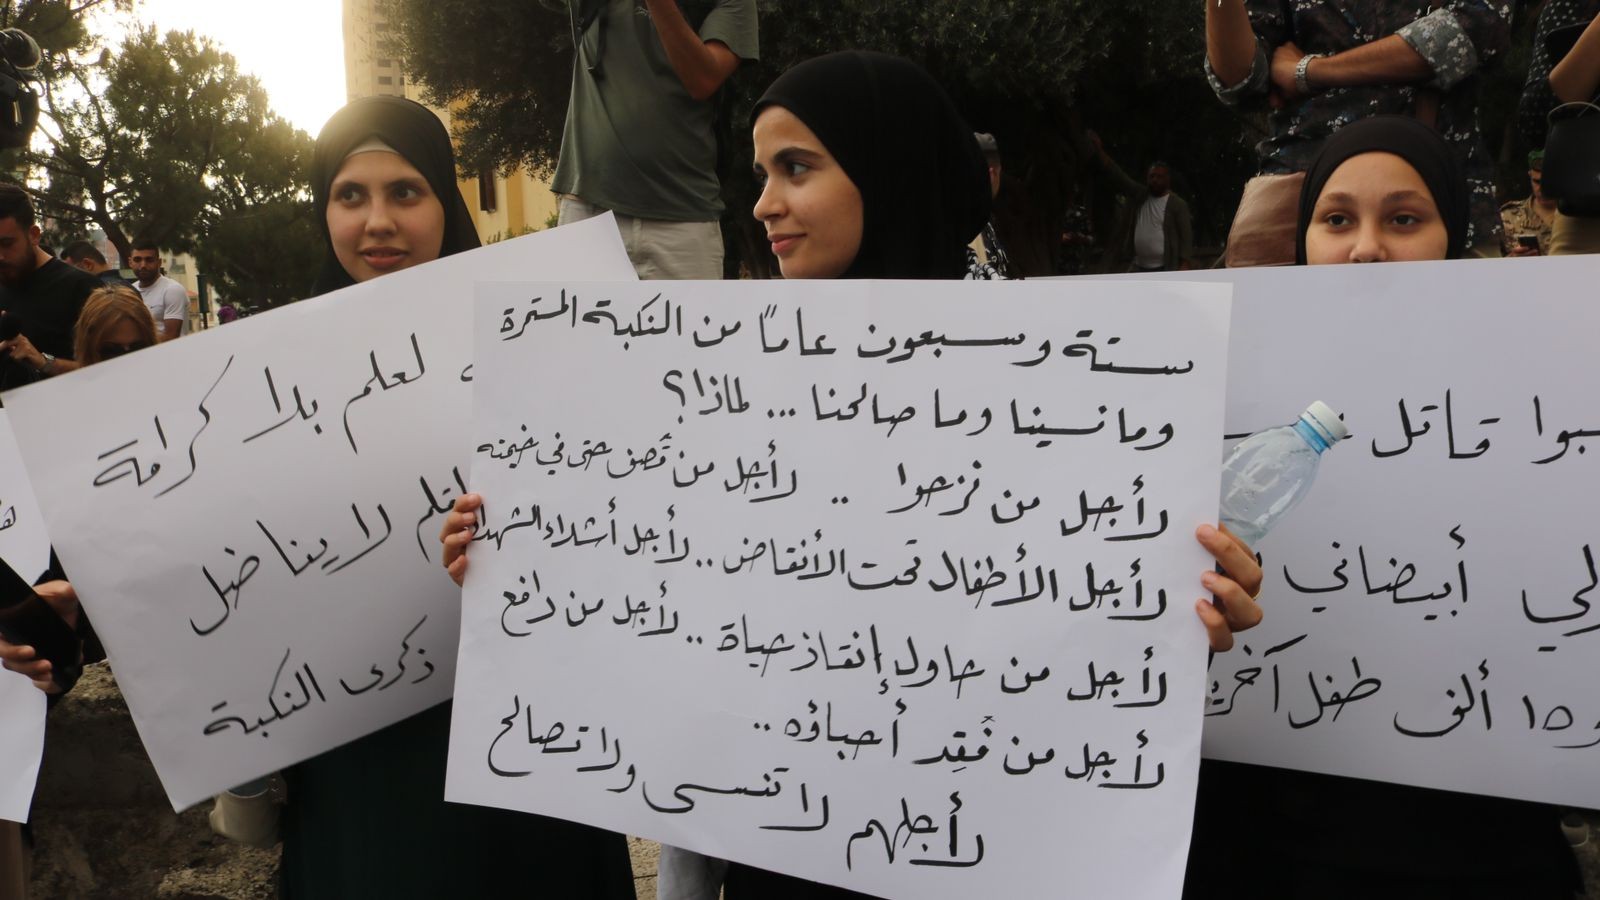 ستة وسبعون عامًا من النكبة المستمرة
وما نسينا وما صالحنا ... لماذا؟
لأجل من نزحوا .. لأجل من قُصف حتى في خيمته
لأجل الأطفال تحت الأنقاض .. لأجل أشلاء الشهداء
لأجل من حاول إنقاذ حياة .. لأجل من دافع
لأجل من فُقِد أحباؤه ..
لأجلهم لا تنسى ولا تصالح
لعلم بلا كرامة
لقلم لا يناضل
ذكرى النكبة
سبوا قاتل
لي أبيضاني
و١٥ ألف طفل آخرين